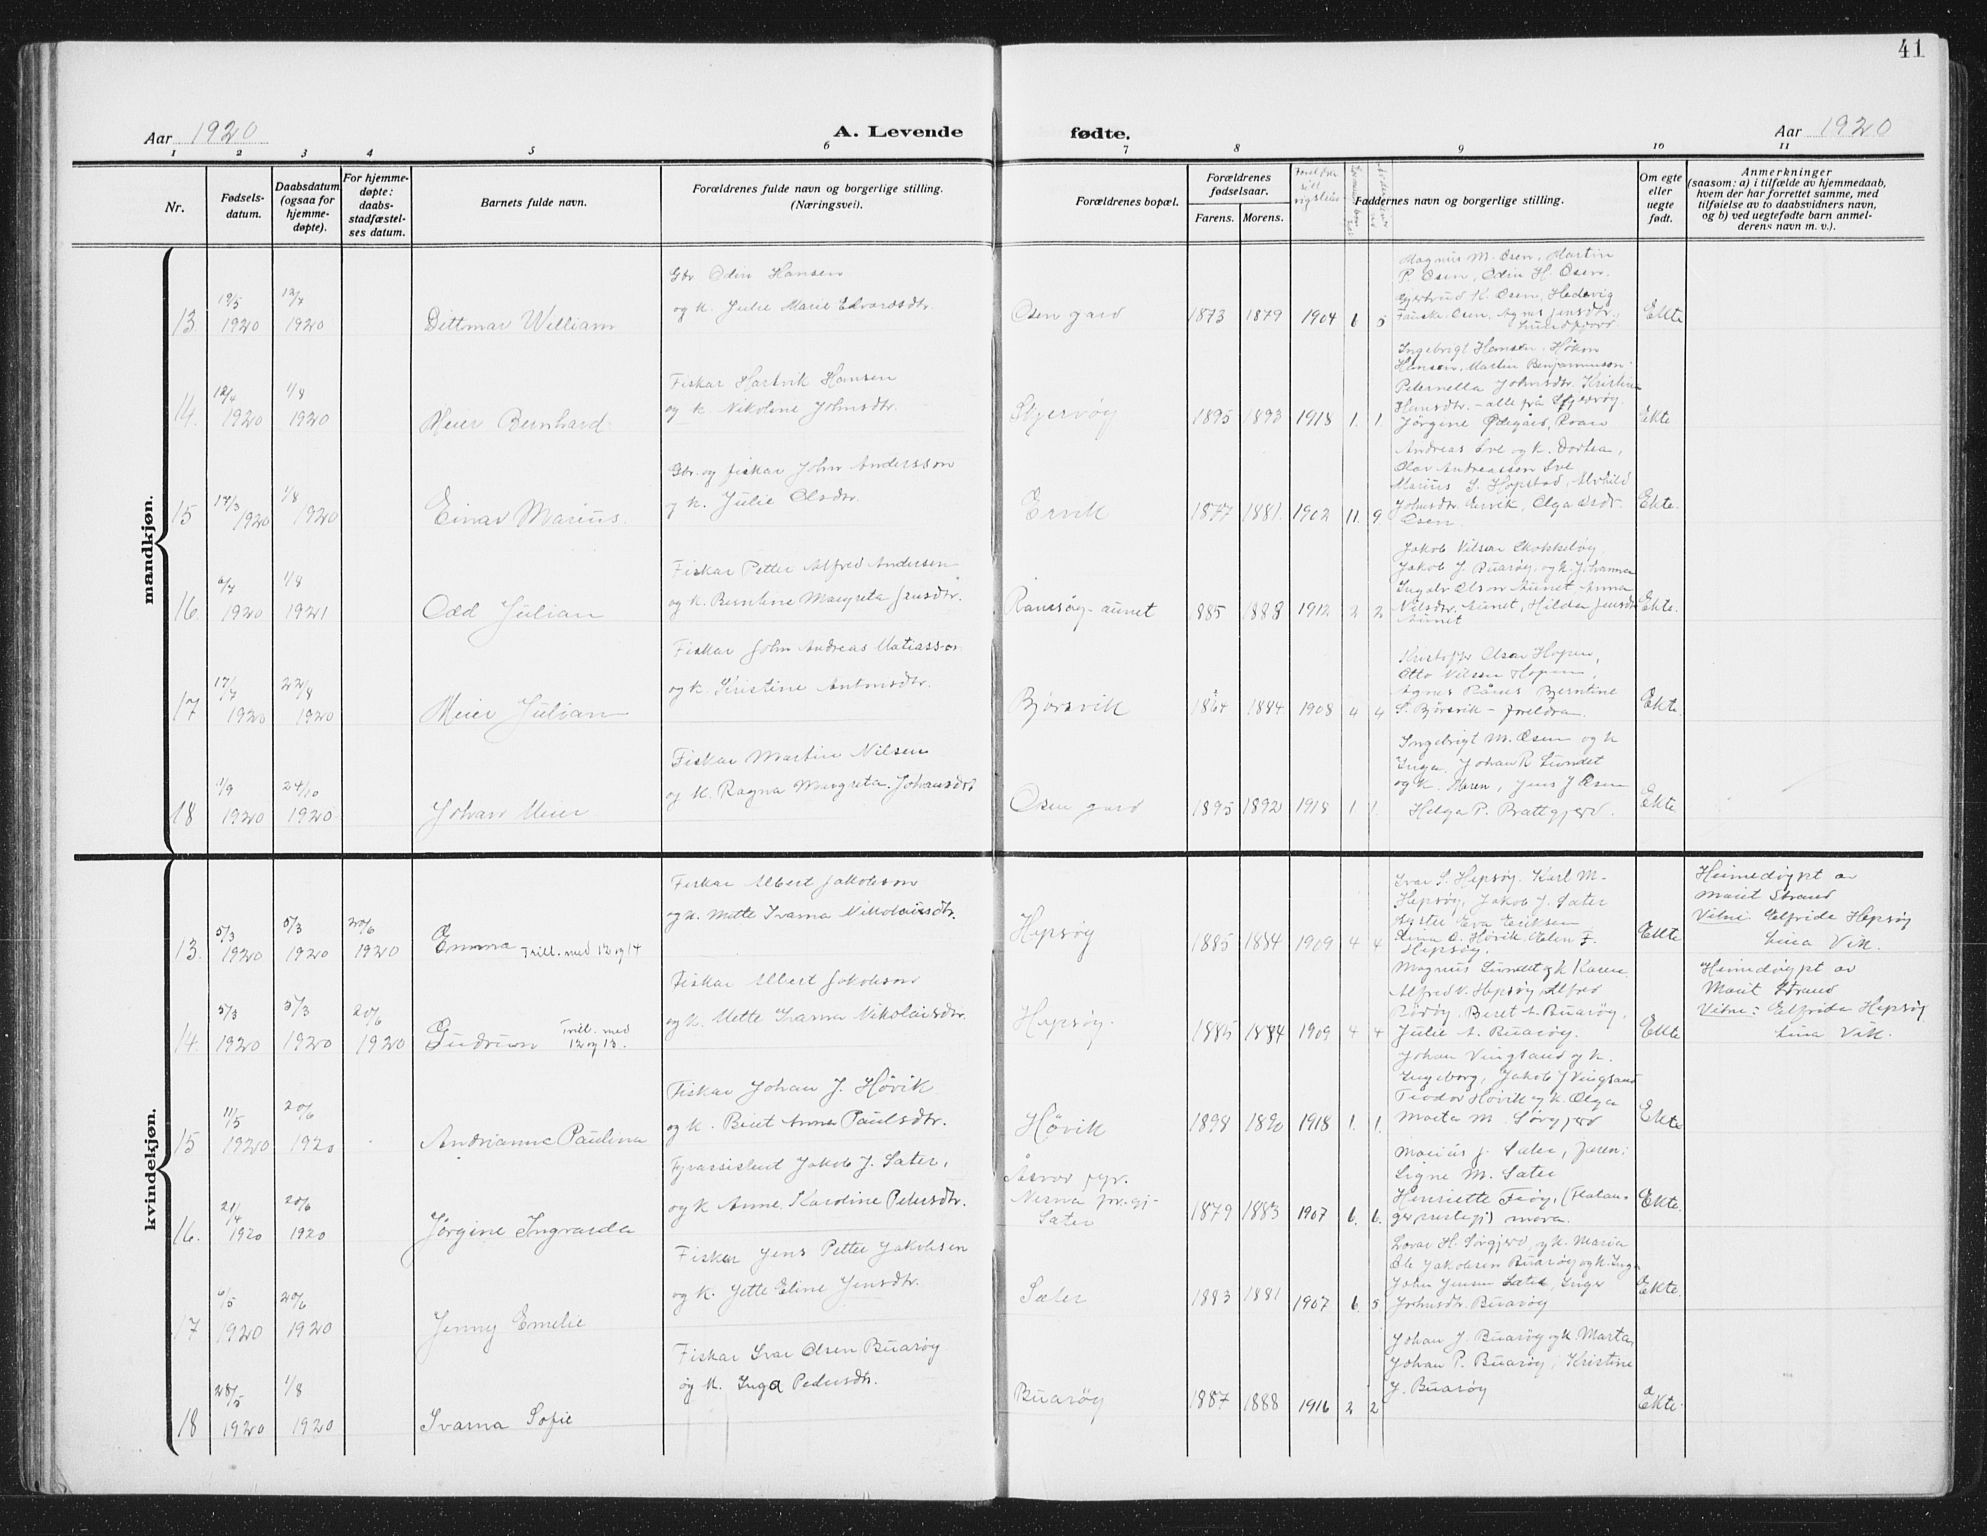 41
Aar 1920
A. Levende fødte.
Aar 1920
1 2 3 4 5 6 7 8 9 10 11
Nr.
Fødsels-
datum.
Daabsdatum
(ogsaa for
hjemme-
døpte).
For hjemme-
døpte:
daabs-
stadfæstel-
ses datum.
Barnets fulde navn.
Forældrenes fulde navn og borgerlige stilling.
(Næringsvei).
Forældrenes bopæl.
Forældrenes
fødselsaar.
Farens. Morens.
Faddernes navn og borgerlige stilling.
Om egte
eller
uegte
født.
Anmerkninger
(saasom: a) i tilfælde av hjemmedaab,
hvem der har forrettet samme, med
tilføielse av to daabsvidners navn,
og b) ved uegtefødte barn anmel-
derens navn m. v.).
mandkjøn.
Gbr. Odin Hansen
og k. Julie Marie Edvardsdtr.
13 19/5 1920 12/7 1920 Dittmar William Osen gard 1873 1879 1904 6 5 Ekte
Magnus M. Osen, Martin
P. Osen, Odin H. Osen.
Gjertrud K. Osen, Hedevig
Fauske Osen, Agnes Jensdtr.
Fiskar Hartvik Hansen
og k. Nikoline Johnsdtr.
14. 12/4 1920 1/8 1920 Meier Bernhard Skjervøy 1895 1893 1918 1. 1. Ekte
Ingebrigt Hansen, Håkon
Hansen, Martin Benjaminsen
Peternella Johnsdtr. Kristine
Hansdtr. - alle frå Skjervøy.
Jørgine Ødegård, Roan
Gbr. og fiskar John Andersson
og k. Julie Olsdtr.
15 17/3 1920 1/8 1920 Einar Marius. Ervik 1877 1881. 1902 11. 9 Ekte.
Andreas Sve og k. Dortea,
Olav Andreassen Sve
Marius S. Hopstad, Alvhild
Johnsdtr. Ervik, Olga Olsdr.
Osen
Fiskar Petter Alfred Andersen
og k. Berntine Margreta Jensdtr.
16. 6/7 1920 1/8 1921 Odd Julian Ramsøy-aunet 1885 1888 1912 2 2 Ekte.
Jakob Nilsen Skokkeløy,
Jakob J. Buarøy, og k. Johanna
Ingolv Olson Aunet Anna
Nilsdtr. Aunet, Hilda Jensdtr
Aunet
Fiskar John Andreas Matiasson
og k. Kristine Antonsdtr.
17 17/7 1920 22/8 1920 Meier Julian Bjørsvik 1864 1884 1908 4 4 Ekte.
Kristoffer Olsen Hopen,
Otto Nilsen Hopen,
Agnes Rånes Bjerntine
S. Bjørsvik - foreldra.
Fiskar Martin Nilsen
og k. Ragna Margreta Johansdtr
18 1/9 1920 24/10 1920 Johan Meier Osen gard 1895 1892 1918 1. 1. Ekte
Ingebrigt M. Osen og k
Inga, Johan R. Sundet
og k. Maren, Jens J Osen
Helga P. Brattgjerd.
kvindekjøn.
Fiskar Albert Jakobson
og k. Mette Ivarna Nikolaisdtr.
13. 5/3 1920 5/3 1920 20/6 1920 Emma Trill. med 12 og 14 Hepsøy 1885 1884 1909 4 4 Ekte
Ivar S. Hepsøy. Karl M.
Hepsøy, Jakob J. Sæter
Syster Eva Eriksen
Anna O. Høvik, Elen F.
Hepsøy.
Heimedøypt av
Marit Strand
Vitni Elfride Hepsøy
Lina Vik.
Fiskar Albert Jakobson
og k. Mette Ivarna Nikolaisdtr.
14. 5/3 1920 5/3 1920 20/6 1920 Gudrun Trill. med 12 og 13. Hepsøy. 1885 1884 1909 4 4 Ekte
Magnus Sundet og k Karen.
Alfred V. Hepsøy, Alfred
Rørøy, Beret A. Buarøy,
Julie A. Buarøy.
Heimedøypt av
Marit Strand
Vitni: Elfride Hepsøy
Lina Vik.
Fiskar Johan J. Høvik
og k. Beret Anna Paulsdtr.
15 11/5 1920 20/6 1920 Andrianne Paulina Høvik 1898 1890 1918 1. 1. Ekte
Johan Vingsand og k.
Ingeborg, Jakob J Vingsand
Teodor Høvik og k. Olga
Marta M. Sørgjerd
Fyrassistent Jakob J. Sæter,
og k Anne Karoline Pedersdtr.
16. 21/4 1920 20/6 1920 Jørgine Ingvarda Åsvær fyr. Nesna pr.gj- Sæter 1879 1883 1907 6. 6. Ekte.
Marius J. Sæter, faren;
Signe M. Sæter
Henriette Terøy, mora.
Fiskar Jens Petter Jakobsen
og k. Jette Eline Jensdtr.
17 6/5 1920 20/6 1920 Jenny Emelie Sæter 1883 1881 1907 6. 5 Ekte.
Edvar H. Sørgjerd, og k. Maria
Ole Jakobsen Buarøy og k. Inga
John Jensen Sæter, Inger
Johnsdtr. Buarøy
Fiskar Ivar Olsen Buarøy
og k. Inga Pedersdtr.
18 28/5 1920 1/8 1920 Ivarna Sofie Buarøy 1887 1888 1916 2 2 Ekte.
Johan J. Buarøy og k. Marta,
Johan P. Buarøy, Kristine
J. Buarøy